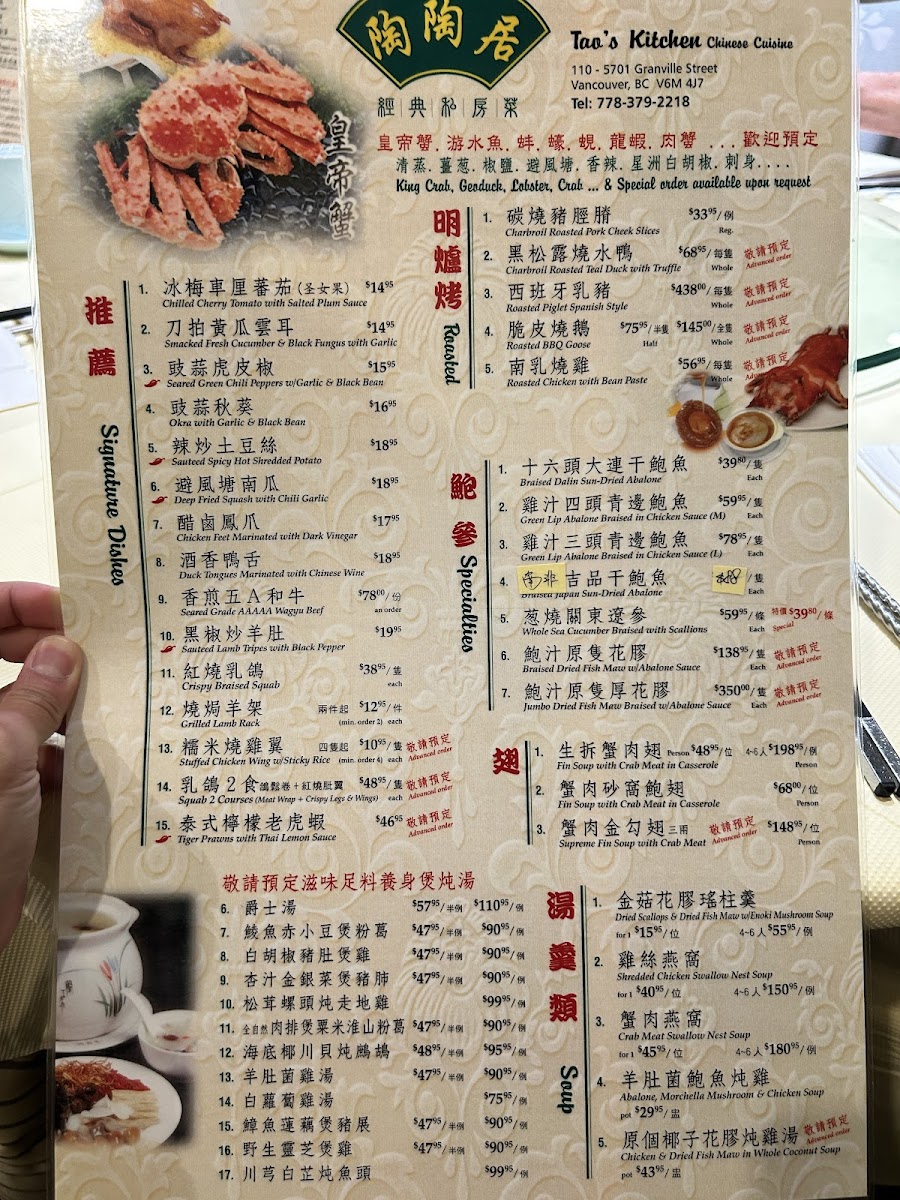 陶陶居
經典私房菜
Tao's Kitchen Chinese Cuisine
110 - 5701 Granville Street
Vancouver, BC V6M 4J7
Tel: 778-379-2218
皇帝蟹
皇帝蟹.游水魚.蚌.蠔.蜆.龍蝦.肉蟹 ... 歡迎預定
清蒸.薑葱.椒鹽.避風塘.香辣.星洲白胡椒.刺身....
King Crab, Geoduck, Lobster, Crab ... & Special order available upon request
推薦 Signature Dishes
1. 冰梅車厘蕃茄(圣女果) $14.95
Chilled Cherry Tomato with Salted Plum Sauce
2. 刀拍黃瓜雲耳 $14.95
Smacked Fresh Cucumber & Black Fungus with Garlic
3. 豉蒜虎皮椒 $15.95
Seared Green Chili Peppers w/Garlic & Black Bean
4. 豉蒜秋葵 $16.95
Okra with Garlic & Black Bean
5. 辣炒土豆絲 $18.95
Sauteed Spicy Hot Shredded Potato
6. 避風塘南瓜 $18.95
Deep Fried Squash with Chili Garlic
7. 醋鹵鳳爪 $17.95
Chicken Feet Marinated with Dark Vinegar
8. 酒香鴨舌 $18.95
Duck Tongues Marinated with Chinese Wine
9. 香煎五A和牛 $78.00/份
Seared Grade AAAAA Wagyu Beef an order
10. 黑椒炒羊肚 $19.95
Sauteed Lamb Tripes with Black Pepper
11. 紅燒乳鴿 $38.95/隻
Crispy Braised Squab each
12. 燒焗羊架 兩件起 $12.95/件
Grilled Lamb Rack (min. order 2) each
13. 糯米燒雞翼 四隻起 $10.95/隻 敬請預定
Stuffed Chicken Wing w/Sticky Rice (min. order 4) each Advanced order
14. 乳鴿2食鴿鬆卷+紅燒肶翼 $48.95/隻 敬請預定
Squab 2 Courses (Meat Wrap + Crispy Legs & Wings) each Advanced order
15. 泰式檸檬老虎蝦 $46.95 敬請預定
Tiger Prawns with Thai Lemon Sauce Advanced order
明爐烤 Roasted
1. 碳燒豬脛脷 $33.95/例
Charbroil Roasted Pork Cheek Slices Reg.
2. 黑松露燒水鴨 $68.95/每隻 敬請預定
Charbroil Roasted Teal Duck with Truffle Whole Advanced order
3. 西班牙乳豬 $438.00/每隻 敬請預定
Roasted Piglet Spanish Style Whole Advanced order
4. 脆皮燒鵝 $75.95/半隻 $145.00/全隻 敬請預定
Roasted BBQ Goose Half Whole Advanced order
5. 南乳燒雞 $56.95/每隻 敬請預定
Roasted Chicken with Bean Paste Whole Advanced order
鮑參 Specialties
1. 十六頭大連干鮑魚 $39.80/隻
Braised Dalin Sun-Dried Abalone Each
2. 雞汁四頭青邊鮑魚 $59.95/隻
Green Lip Abalone Braised in Chicken Sauce (M) Each
3. 雞汁三頭青邊鮑魚 $78.95/隻
Green Lip Abalone Braised in Chicken Sauce (L) Each
4. 南非吉品干鮑魚 /隻
Braised Japan Sun-Dried Abalone Each
5. 葱燒關東遼參 $59.95/條 特價 $39.80/條
Whole Sea Cucumber Braised with Scallions Each Special
6. 鮑汁原隻花膠 $138.95/隻 敬請預定
Braised Dried Fish Maw w/Abalone Sauce Each Advanced order
7. 鮑汁原隻厚花膠 $350.00/隻 敬請預定
Jumbo Dried Fish Maw Braised w/Abalone Sauce Each Advanced order
翅
1. 生拆蟹肉翅 Person $48.95/位 4-6人 $198.95/例
Fin Soup with Crab Meat in Casserole Person
2. 蟹肉砂窩鮑翅 $68.00/位
Fin Soup with Crab Meat in Casserole Person
3. 蟹肉金勾翅三兩 敬請預定 $148.95/位
Supreme Fin Soup with Crab Meat Advanced order Person
湯羹類 Soup
1. 金菇花膠瑤柱羹
Dried Scallops & Dried Fish Maw w/Enoki Mushroom Soup
for 1 $15.95/位 4~6人 $55.95/例
2. 雞絲燕窩
Shredded Chicken Swallow Nest Soup
for 1 $40.95/位 4~6人 $150.95/例
3. 蟹肉燕窩
Crab Meat Swallow Nest Soup
for 1 $45.95/位 4~6人 $180.95/例
4. 羊肚菌鮑魚炖雞
Abalone, Morchella Mushroom & Chicken Soup
pot $29.95/盅
5. 原個椰子花膠炖雞湯 敬請預定
Chicken & Dried Fish Maw in Whole Coconut Soup Advanced order
pot $43.95/盅
敬請預定滋味足料養身煲炖湯
6. 爵士湯 $57.95/半例 $110.95/例
7. 鯪魚赤小豆煲粉葛 $47.95/半例 $90.95/例
8. 白胡椒豬肚煲雞 $47.95/半例 $90.95/例
9. 杏汁金銀菜煲豬肺 $47.95/半例 $90.95/例
10. 松茸螺頭炖走地雞 $99.95/例
11. 全自然肉排煲粟米淮山粉葛 $47.95/半例 $90.95/例
12. 海底椰川貝炖鷓鴣 $48.95/半例 $95.95/例
13. 羊肚菌雞湯 $47.95/半例 $90.95/例
14. 白蘿蔔雞湯 $75.95/例
15. 鱆魚蓮藕煲豬展 $47.95/半例 $90.95/例
16. 野生靈芝煲雞 $47.95/半例 $90.95/例
17. 川芎白芷炖魚頭 $99.95/例